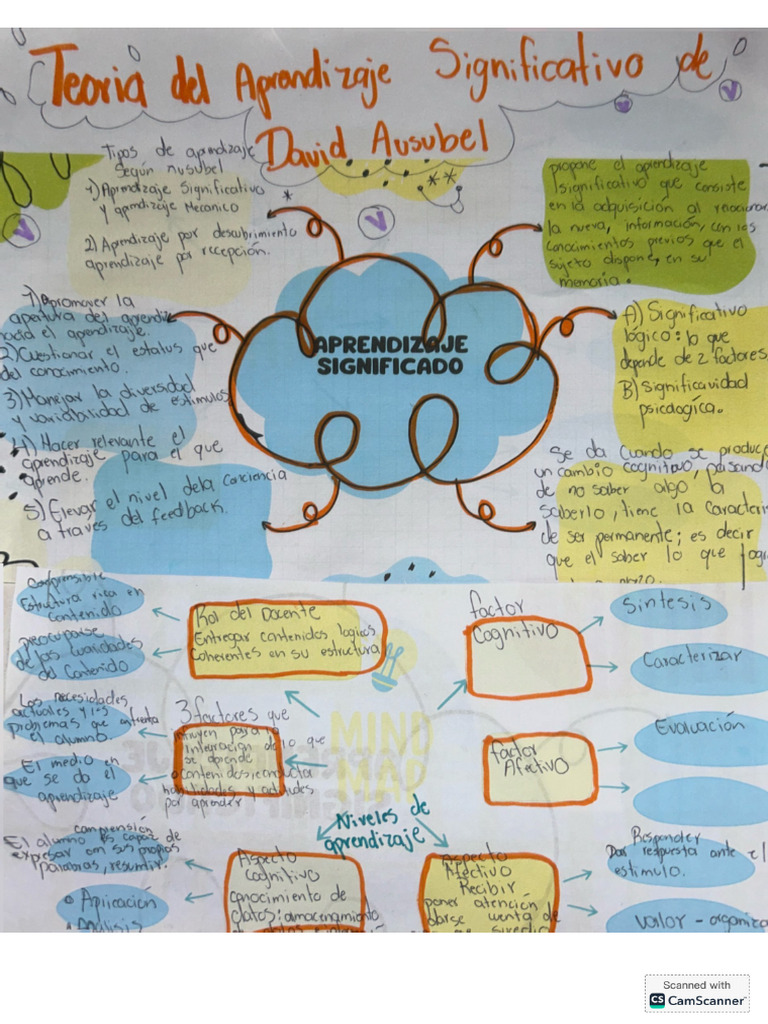 Teoria del Aprendizaje Significativo de
David Ausubel
Tipos de aprendizaje
Según Ausubel
1) Aprendizaje Significativo
y aprndizaje Mecanico
2) Aprendizaje por descubrimiento
aprendizaje por recepción.
*
**
V
V
V
V
propone el aprendizaje
significativo que consiste
en la adquisición al relacionar
la nueva, información, con los
conocimientos previos que el
sujeto dispone, en su
memoria.
1) promover la
apertura del aprendi
hacia el aprendizaje.
2) Cuestionar el estatus que
del conocimiento.
3) Manejar la diversidad
y variabilidad de estimulos
4) Hacer relevante el
aprendizaje para el que
aprende.
5) Elevar el nivel de la conciencia
a traves del feedback.
APRENDIZAJE
SIGNIFICADO
A) Significativo
lógico: lo que
depende de 2 factores
B) Significavidad
psicologica.
Se da cuando se produce
un cambio cognitivo, pasando
de no saber algo la
saberlo, tiene la caracteri
de ser permanente; es decir
que el saber lo que logra
Comprensible
Estructura rica en
contenido
preocuparse
de las
del contenido
Rol del Docente
Entregar contenidos logicos
Coherentes en su estructura
factor
Cognitivo
Sintesis
Caracterizar
Las necesidades
actuales y los
problemas que enfrenta
el alumno
El medio en
que se da el
aprendizaje
3 factores que
influyen para la
integración de lo que
se aprende
contenidos conducta
habilidades y actitudes
por aprender
MIND
MAP
factor
Afectivo
Evaluación
Niveles de
aprendizaje
comprensión
El alumno es capaz de
expresar con sus propias
palabras, resumir.
Aplicación
Análisis
Aspecto
Cognitivo
conocimiento de
datos: almacenamiento
Aspecto
Afectivo
Recibir
poner atención
darse cuenta de
Responder
Dar respuesta ante el
estimulo.
valor - organiza
Scanned with
CS CamScanner